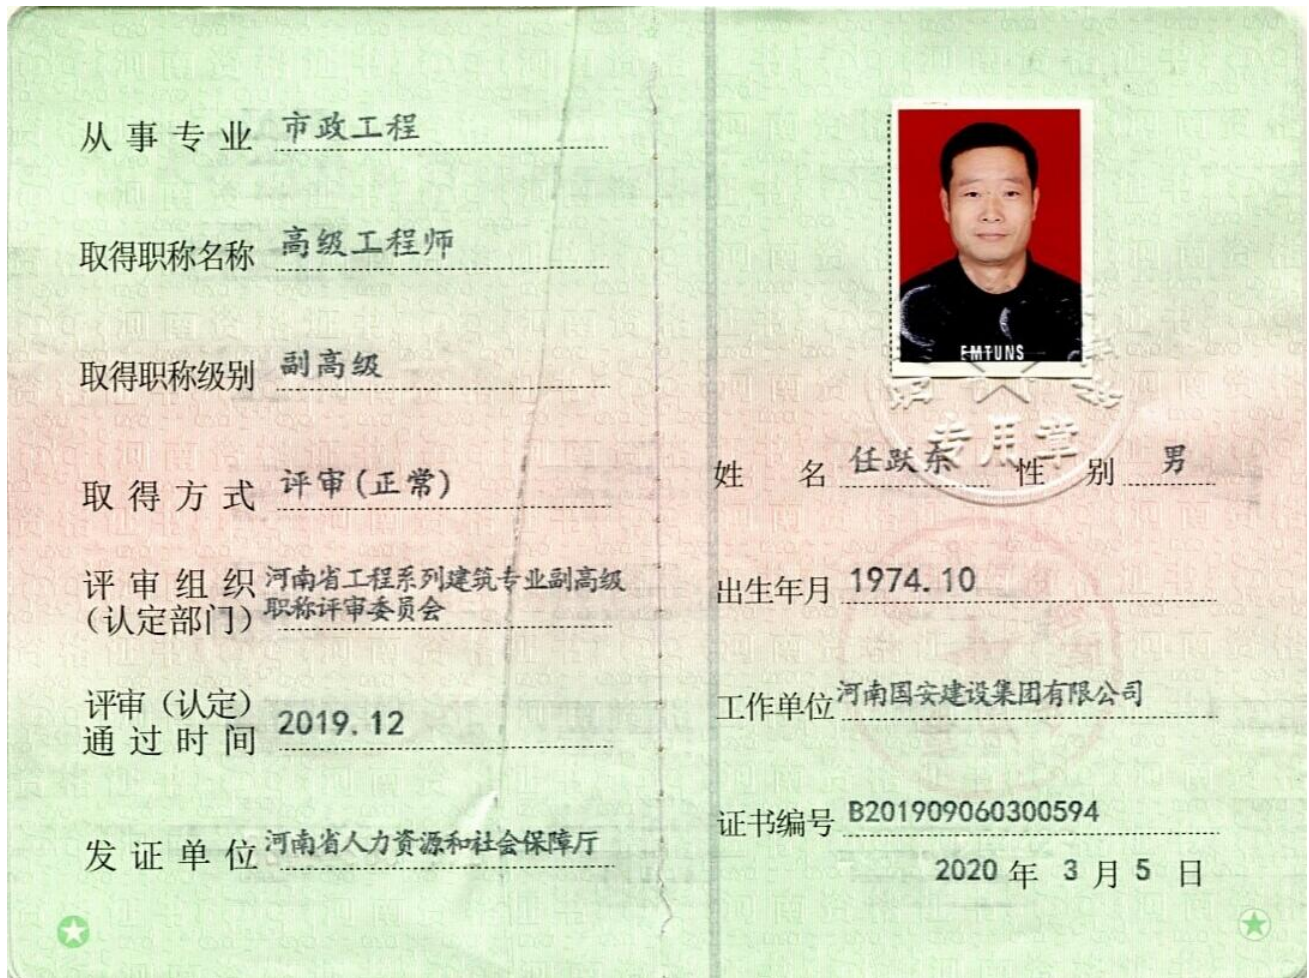 从事专业 市政工程
取得职称名称 高级工程师
取得职称级别 副高级
取得方式 评审(正常)
评审组织 河南省工程系列建筑专业副高级
(认定部门) 职称评审委员会
评审(认定)
通过时间 2019.12
发证单位 河南省人力资源和社会保障厅
EMTUNS
专用章
姓名 任跃东 性别 男
出生年月 1974.10
工作单位 河南国安建设集团有限公司
证书编号 B201909060300594
2020 年 3 月 5 日